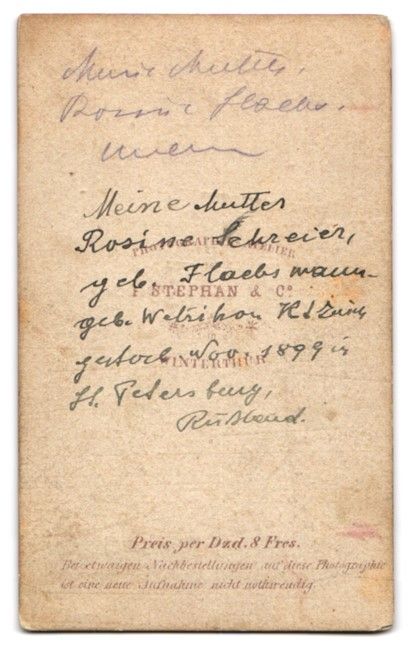 Meine Mutter,
Rosine Flachs-
mann
Meine Mutter
Rosine Schreier,
PHOTOGRAPHISCHES ATELIER
geb. Flachsmann-
STEPHAN & Co
geb. Wetzikon Kt Zürich
gestorb. Nov. 1899 in
WINTERTHUR
St. Petersburg,
Rußland.
Preis per Dzd. 8 Frcs.
Bei etwaigen Nachbestellungen auf diese Photographie
ist eine neue Aufnahme nicht nothwendig.